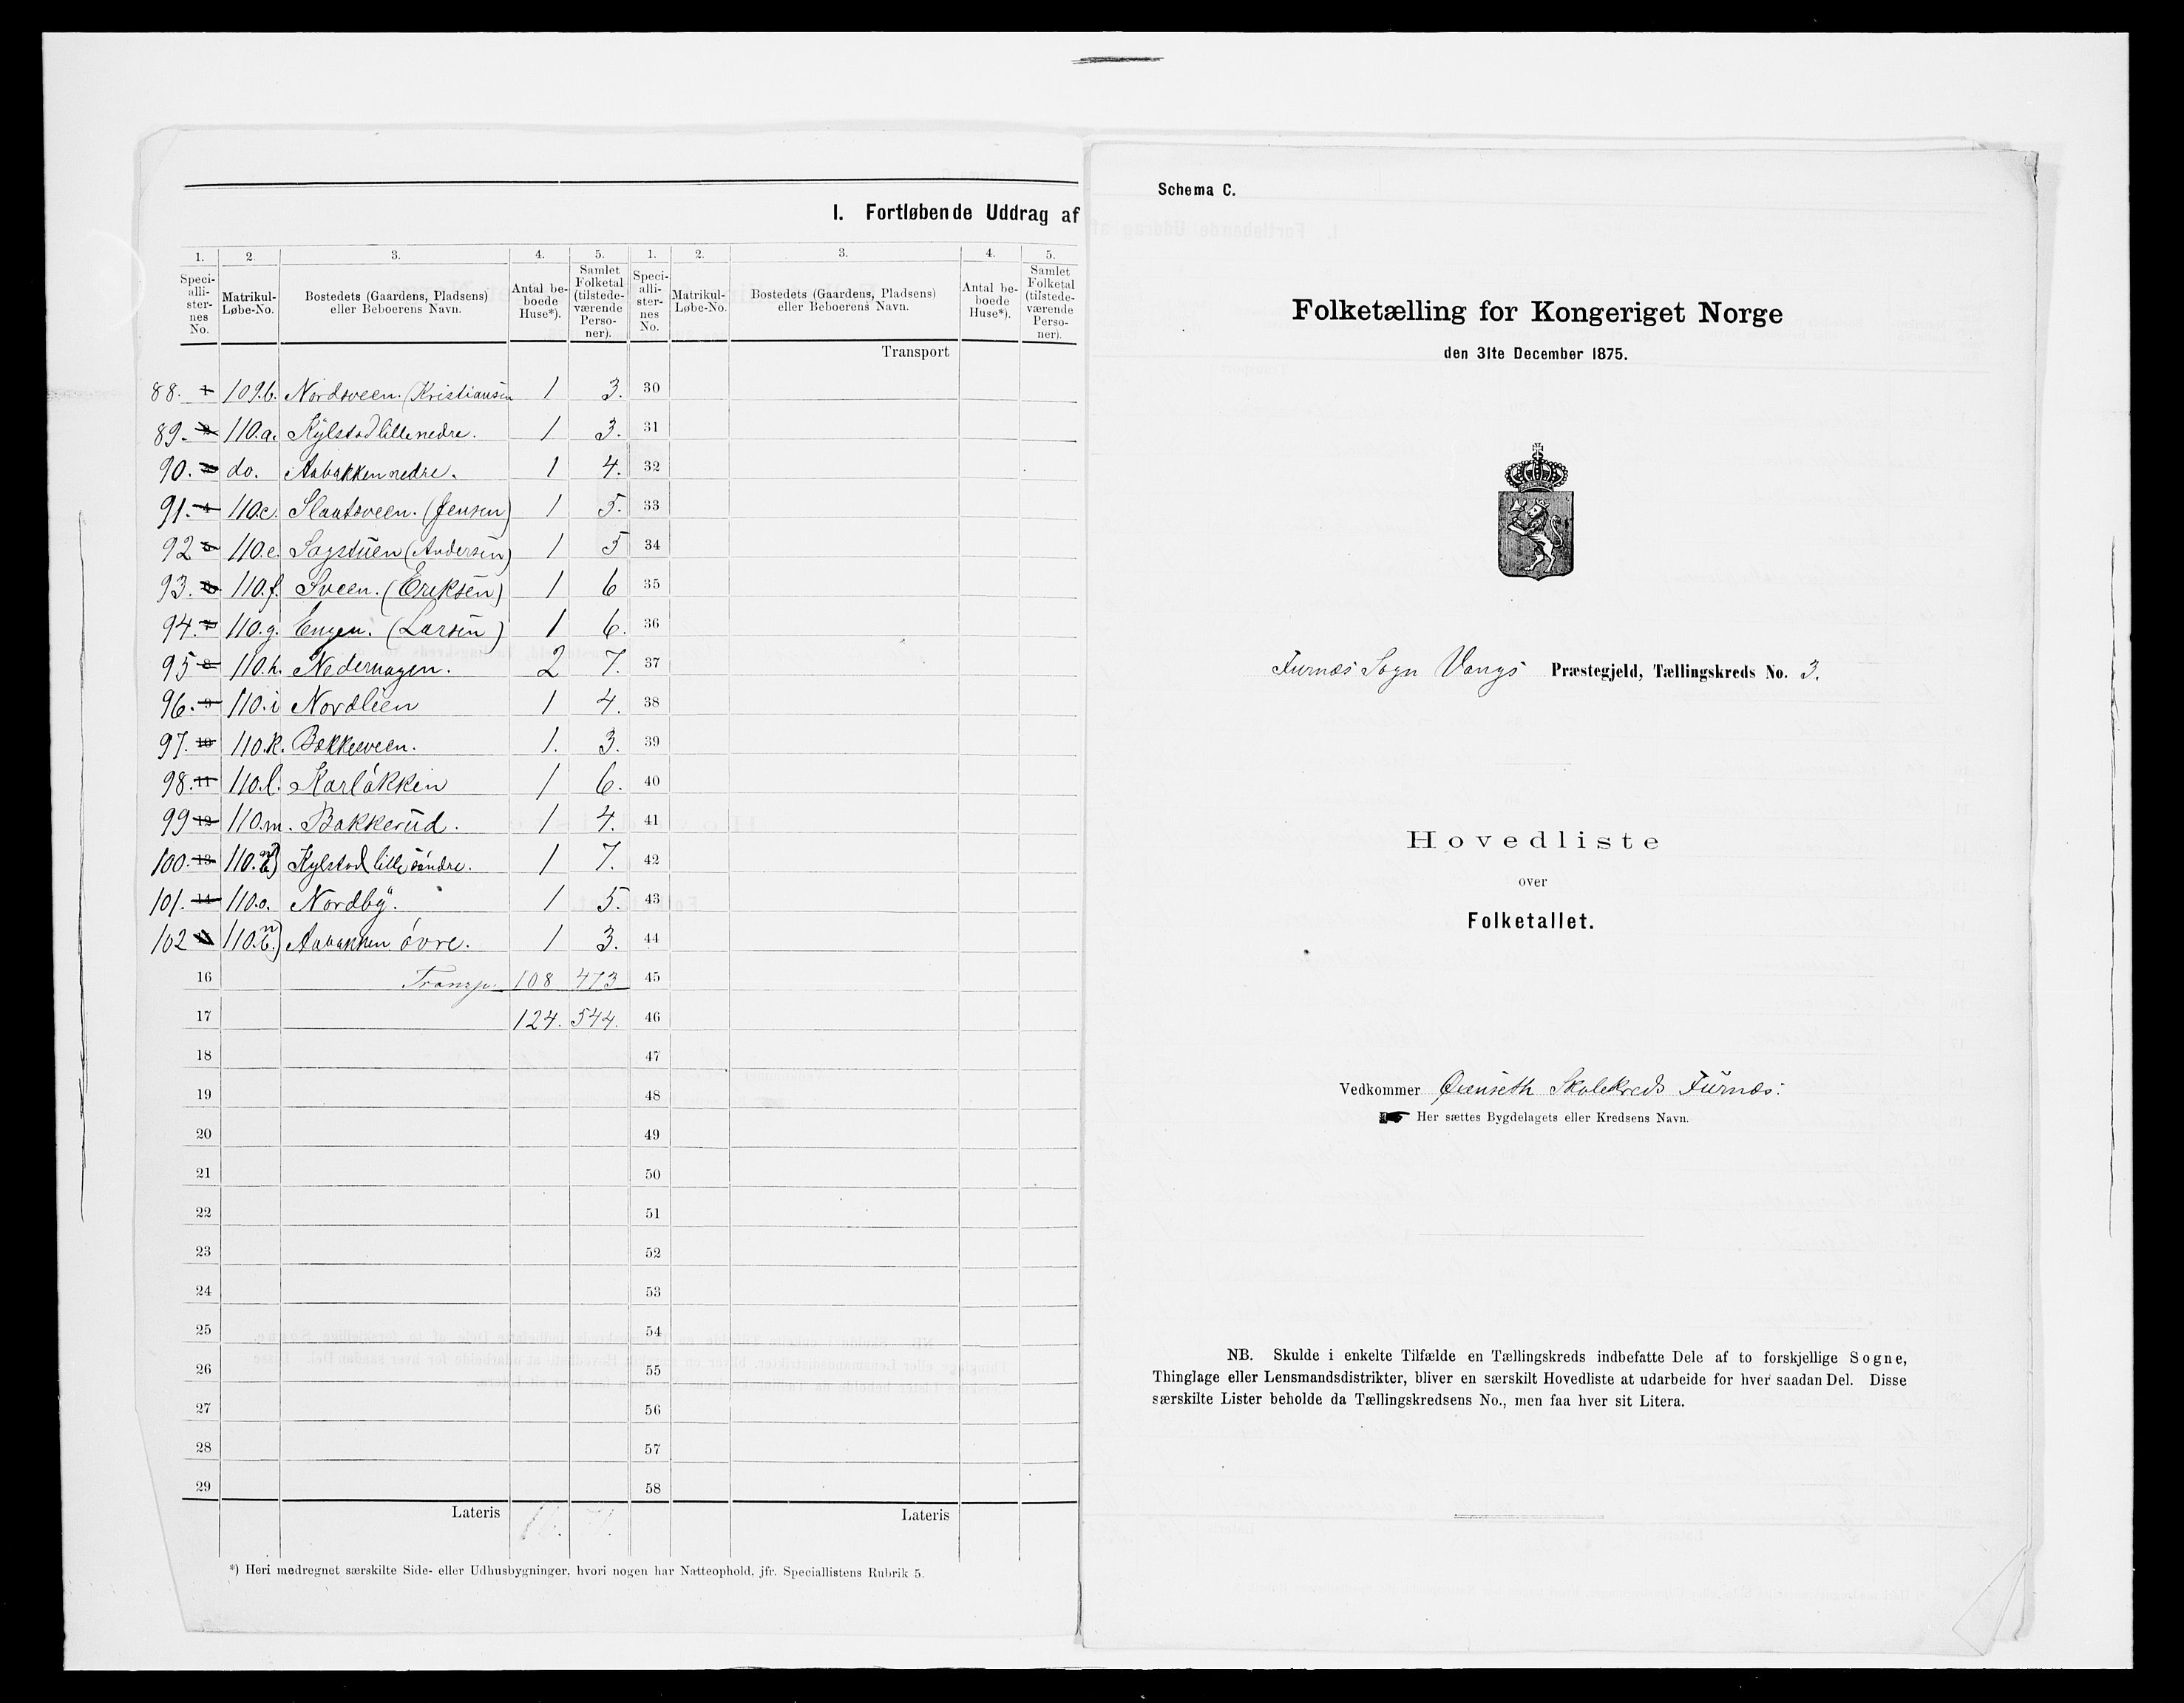 I. Fortløbende Uddrag af
1. 2. 3. 4. 5. 1. 2. 3. 4. 5.
Speci-alli-ster-nes No. Matrikul-Løbe-No. Bostedets (Gaardens, Pladsens) eller Beboerens Navn. Antal be-boede Huse*). Samlet Folketal (tilstede-værende Perso-ner). Speci-alli-ster-nes No. Matrikul-Løbe-No. Bostedets (Gaardens, Pladsens) eller Beboerens Navn. Antal be-boede Huse*). Samlet Folketal (tilstede-værende Perso-ner).
Transport
88. 1 109.b. Nordsveen. (Kristiansen 1 3. 30
89. 2 110.a. Kylstad lille nedre. 1 3. 31
90. 3 do. Aabakken nedre. 1 4. 32
91. 4 110.c. Slaatsveen. (Jensen) 1 5. 33
92 5 110.e. Sagstuen (Andersen) 1 5 34
93. 6 110.f. Sveen. (Eriksen) 1 6 35
94. 7 110.g. Engen. (Larsen) 1 6. 36
95 8 110.h. Nedernagen. 2 7. 37
96. 9 110.i Nordlien 1 4. 38
97. 10 110.k. Bækkesveen. 1. 3. 39
98. 11 110.l. Karløkken 1 6. 40
99 12 110.m. Bakkerud. 1 4. 41
100. 13 110. Kylstad lille søndre. 1 7. 42
101. 14 110.o. Nordby. 1 5. 43
102 110. Aabakken øvre. 1 3. 44
16 Transp. 108 473 45
17 124. 544. 46
18 47
19 48
20 49
21 50
22 51
23 52
24 53
25 54
26 55
27 56
28 57
29 58
Lateris 16. 71. Lateris
*) Heri medregnet særskilte Side- eller Udhusbygninger, hvori nogen har Natteophold, jfr. Speciallistens Rubrik 5.
Schema C.
Folketælling for Kongeriget Norge
den 31te December 1875.
Furnæs Sogn Vangs Præstegjeld, Tællingskreds No. 3.
Hovedliste
over
Folketallet.
Vedkommer Skolekreds Furnæs.
Her sættes Bygdelagets eller Kredsens Navn.
NB. Skulde i enkelte Tilfælde en Tællingskreds indbefatte Dele af to forskjellige Sogne,
Thinglage eller Lensmandsdistrikter, bliver en særskilt Hovedliste at udarbeide for hver saadan Del. Disse
særskilte Lister beholde da Tællingskredsens No., men faa hver sit Litera.